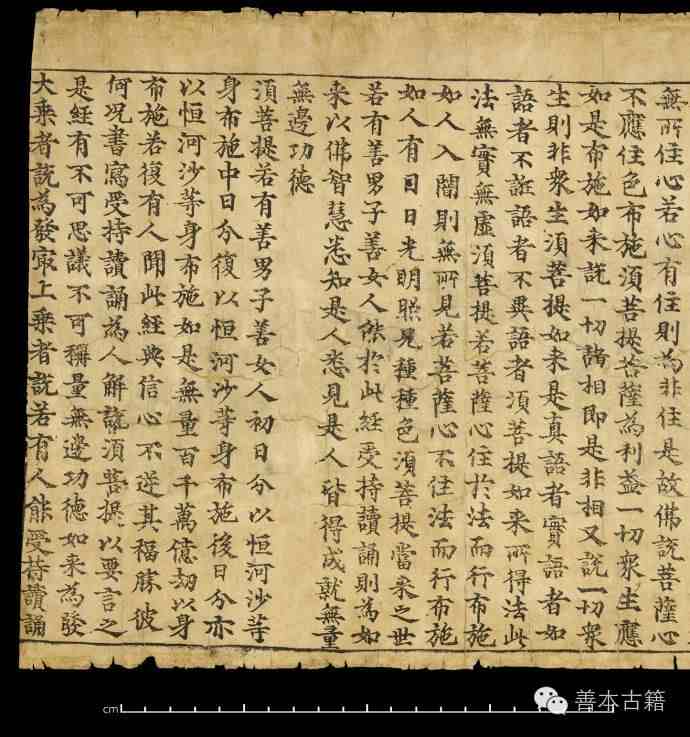 無所住心若心有住則為非住是故佛說菩薩心
不應住色布施須菩提菩薩為利益一切衆生應
如是布施如来說一切諸相即是非相又說一切衆
生則非衆生須菩提如来是真語者實語者如
語者不誑語者不異語者須菩提如来所得法此
法無實無虛須菩提若菩薩心住於法而行布施
如人入闇則無所見若菩薩心不住法而行布施
如人有目日光明照見種種色須菩提當来之世
若有善男子善女人能於此經受持讀誦則為如
来以佛智慧悉知是人悉見是人皆得成就無量
無邊功德
須菩提若有善男子善女人初日分以恒河沙等
身布施中日分復以恒河沙等身布施後日分亦
以恒河沙等身布施如是無量百千萬億劫以身
布施若復有人聞此經典信心不逆其福勝彼
何況書寫受持讀誦為人解說須菩提以要言之
是經有不可思議不可稱量無邊功德如来為發
大乘者說為發最上乘者說若有人能受持讀誦
cm
善本古籍